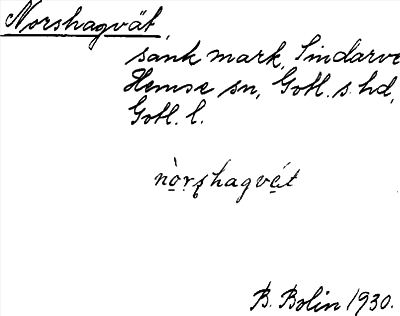 Norshagvät,
sank mark, Sindarve
Hemse sn, Gotl. s. hd,
Gotl. l.
nò̱ṛʂhagvé̱t
B. Bolin 1930.